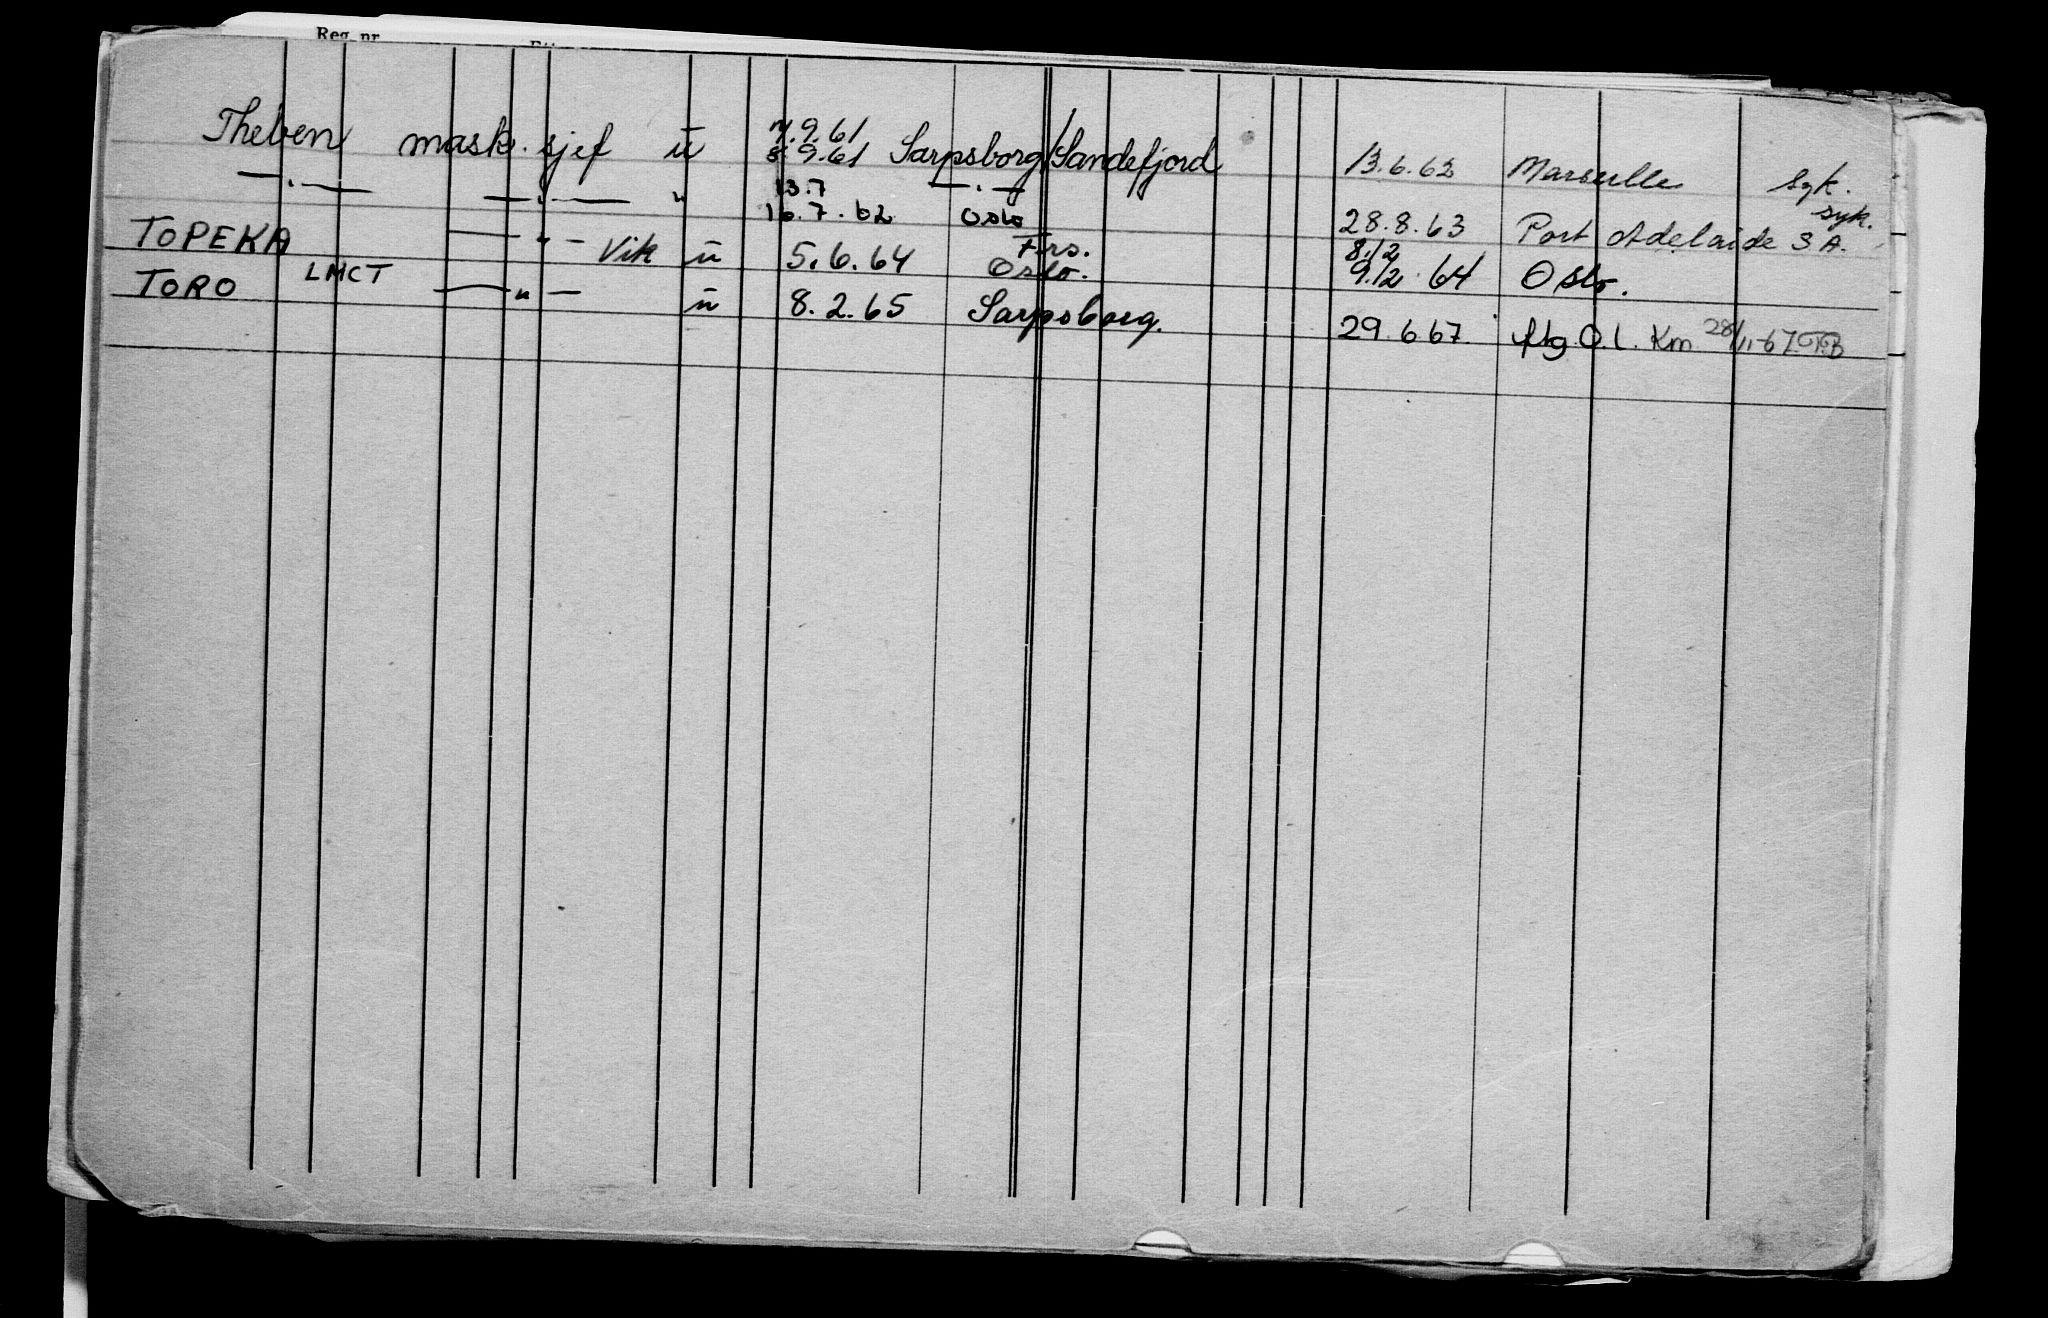 Reg nr
Theben mask. sjef u 7.9.61 8.9.61 Sarpsborg/Sandefjord 13.6.62 Marseille syk.
—.— —.— " 13.7 16.7.62 —.— Oslo 28.8.63 Port Adelaide S A. syk.
TOPEKA —"— Vik u 5.6.64 Frs. Oslo. 8/12 9/12 64 Oslo.
TORO LMCT —"— u 8.2.65 Sarpsborg. 29.6.67. flg O.L. Km 28/11-67